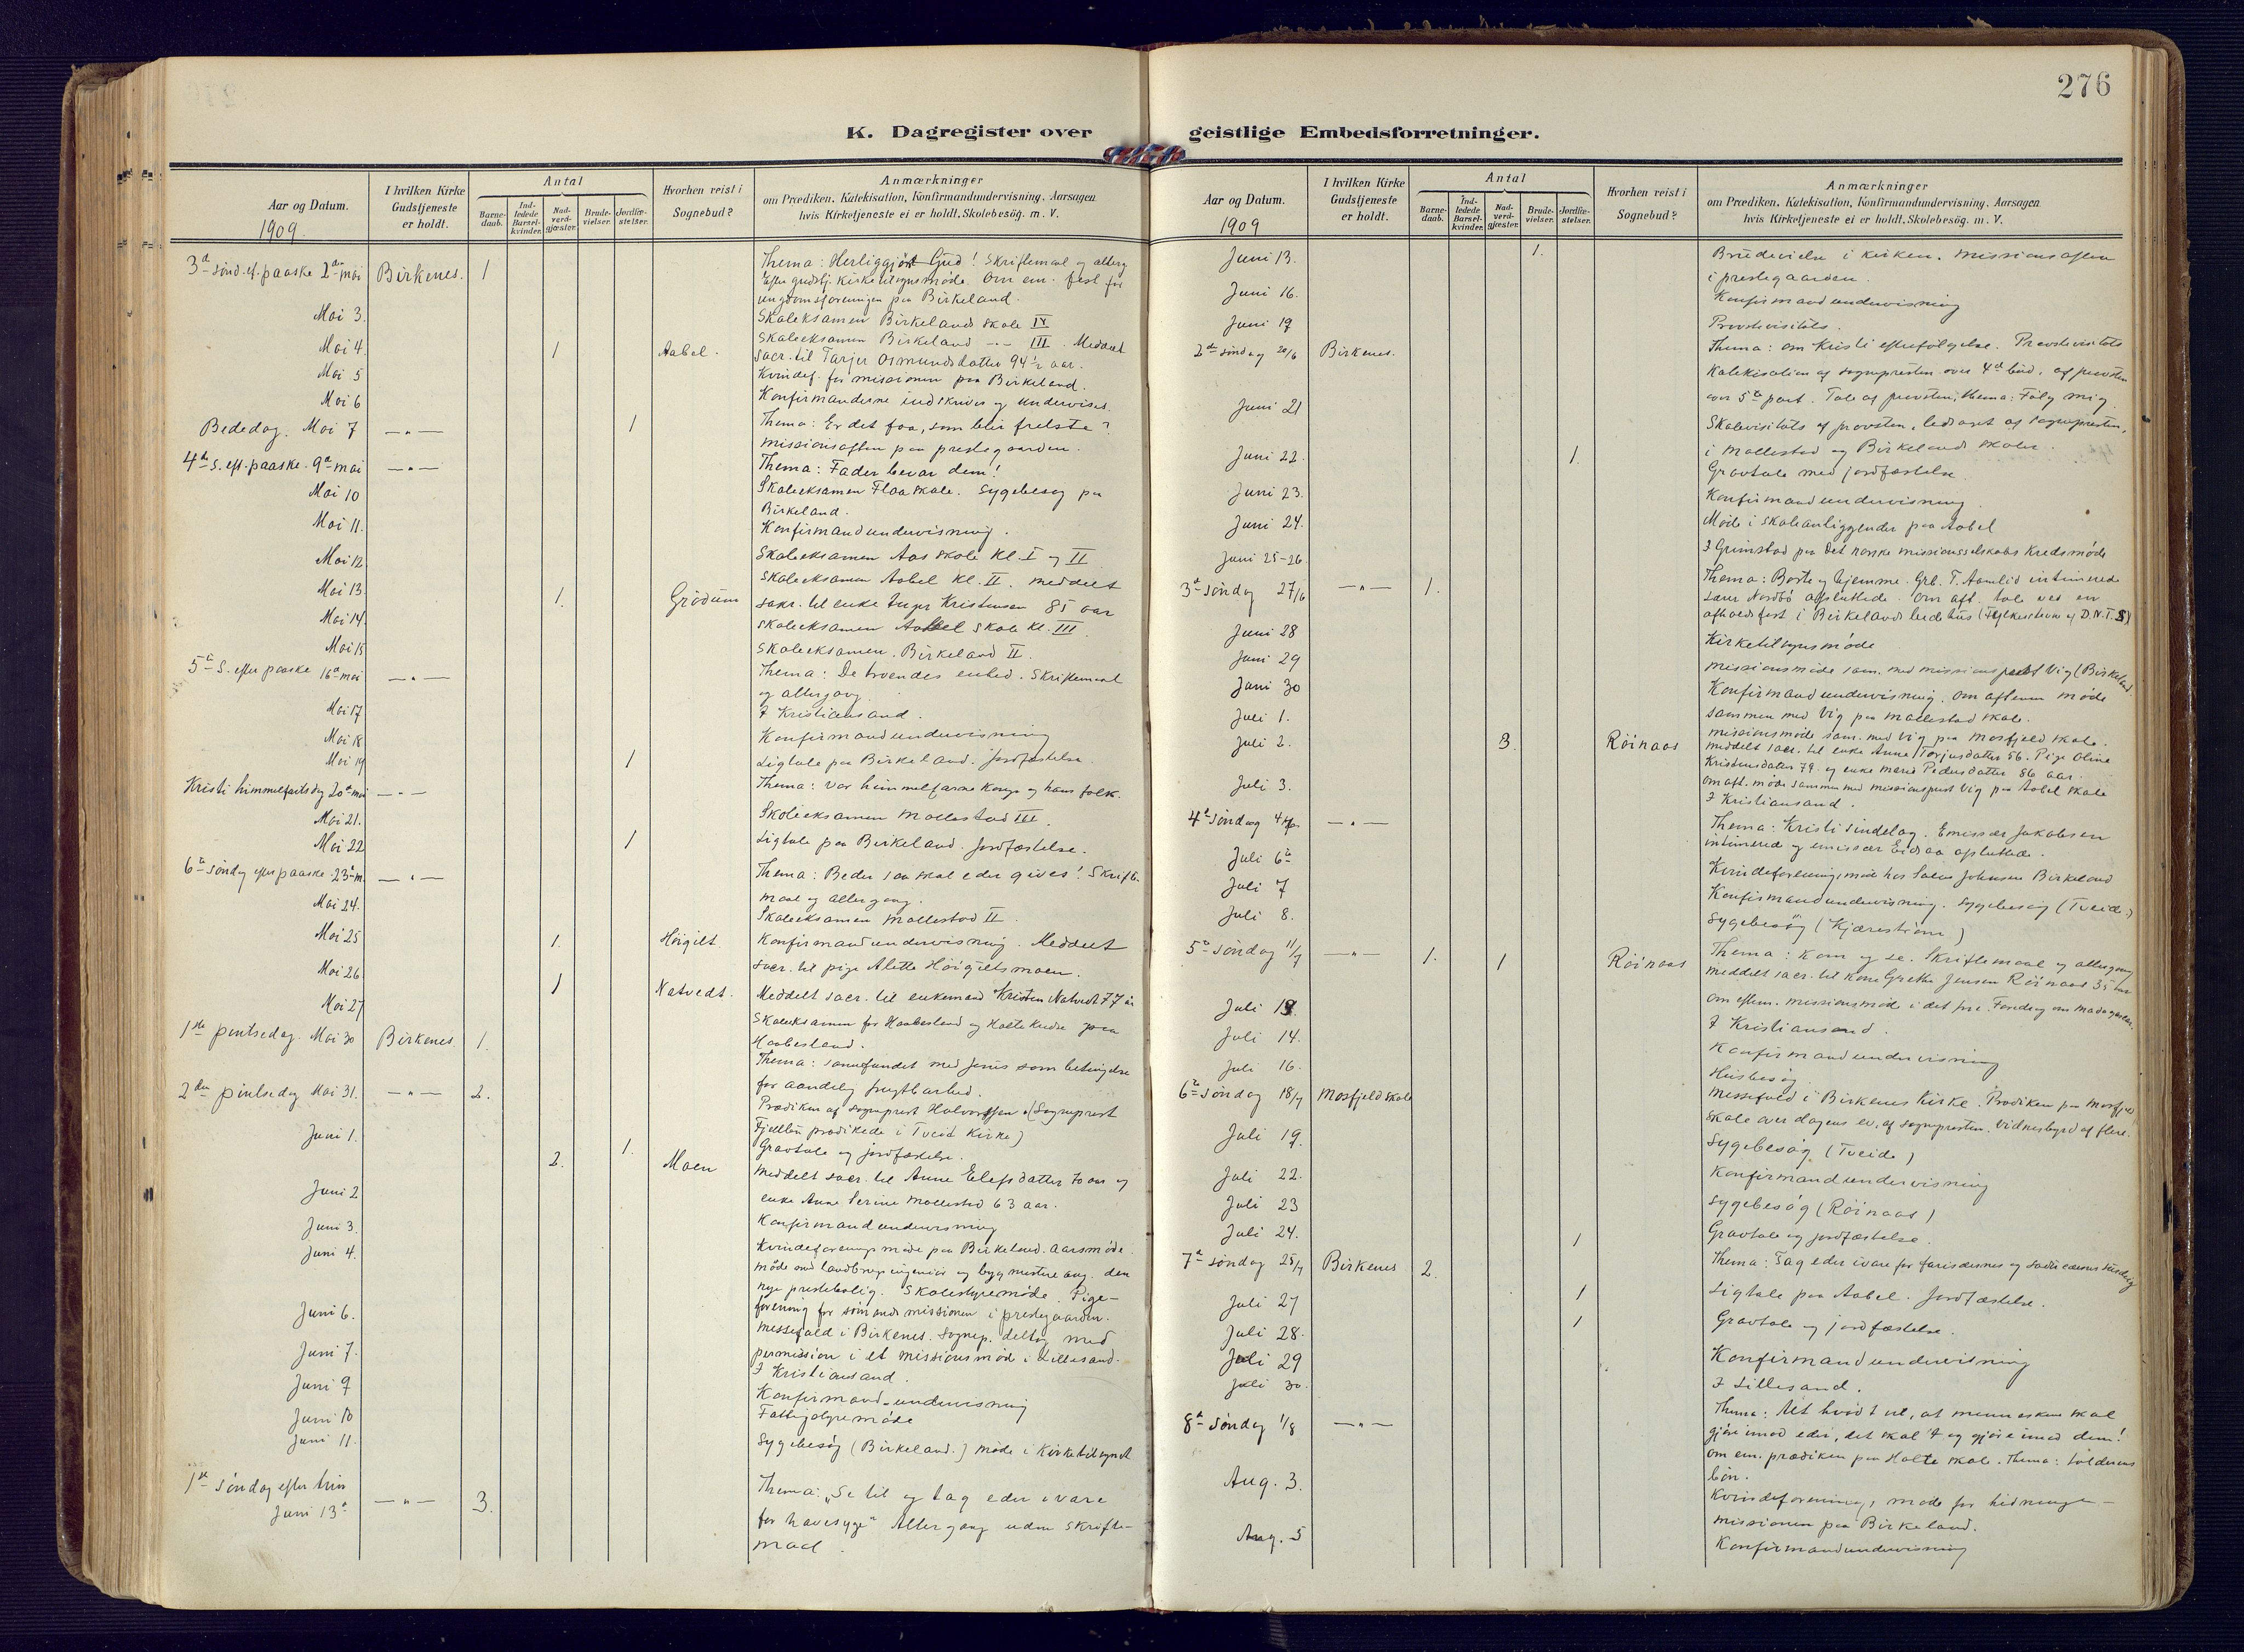 276
K. Dagregister over
Aar og Datum.
1909.
I hvilken Kirke Gudstjeneste er holdt.
Antal
Barne-daab.
Ind-ledede Barsel-kvinder.
Nad-verd-gjæster.
Brude-vielser.
Jordfæ-stelser.
Hvorhen reist i Sognebud?
Anmærkninger
om Prædiken, Katekisation, Konfirmandundervisning, Aarsagen
hvis Kirketjeneste ei er holdt, Skolebesög. m. V.
3d sönd. ef. paaske 2den mai Birkenes. 1 Thema: Herliggjört Gud! Skriftemaal og alterg
Efter gudstj. kirketilsynsmöde. Om em. fest for
ungdomsforeningen paa Birkeland.
Mai 3. Skoleeksamen Birkelands skole IV
Mai 4. 1 Aabel. Skoleeksamen Birkeland -"- III. Meddelt
sacr. til Tarjer Osmundsdatter 94½ aar.
Mai 5 Kvindef. for missionen paa Birkeland.
Mai 6 Konfirmanderne indskrives og undervises.
Bededag. Mai 7 -"- 1 Thema: Er det faa, som blir frelste?
missionsaften paa prestegaarden.
4de s. eft. paaske. 9de mai -"- Thema: Fader bevar dem!
Mai 10 Skoleeksamen Flaa skole. Sygebesög paa
Birkeland.
Mai 11. Konfirmandundervisning.
Mai 12 Skoleeksamen Aas skole Kl. I og II
Mai 13 1. Grödum Skoleeksamen Aabel Kl. II. meddelt
sakr. til enke Inger Kristensen 85 aar
Mai 14. Skoleeksamen Aabel skole Kl. III.
Mai 15 Skoleeksamen. Birkeland II.
5te S. efter paaske 16de mai -"- Thema: De troendes enhed. Skriftemaal
og altergang.
Mai 17 I Kristiansand.
Mai 18 Konfirmandundervisning
Mai 19 1 Ligtale paa Birkeland. Jordfæstelse.
Kristi himmelfartsdag 20de mai -"- Thema: Vor himmelfarne Konge og hans folk.
Mai 21. Skoleeksamen Mollestad III.
Mai 22 1 Ligtale paa Birkeland. Jordfæstelse.
6te söndag efter paaske 23de m. -"- Thema: Beder saa skal eder gives! Skrifte-
maal og altergang.
Mai 24. Skoleeksamen Mollestad II.
Mai 25 1. Höigilt. Konfirmandundervisning. Meddelt
sacr. til pige Alette Höigiltsmoen.
Mai 26 1 Natvedt. Meddelt sacr. til enkemand Kristen Natvedt 77 år
Mai 27 Skoleeksamen for Haabesland og Holte kreds paa
Haabesland.
1ste pintsedag. Mai 30 Birkenes. 1. Thema: samfundet med Jesus som betingelse
for aandelig frugtbarhed.
2den pintsedag Mai 31. -"- 2. Prædiken af sogneprest Halvorssen. (Sogneprest
prædikede i Tveid Kirke)
Juni 1. 1. Gravtale og jordfæstelse.
2. Moen Meddelt sacr. til Anne Elefsdatter 70 aar og
enke Anne Serine Mollestad 63 aar.
Juni 2 Konfirmandundervisning
Juni 3. Kvindeforenings möde paa Birkeland. Aarsmöde.
Juni 4. Möde med landbrugsingeniör og bygmestere ang. den
nye prestebolig. Skolestyremöde. Pige-
forening for sömandsmissionen i prestegaarden.
Juni 6. Messefald i Birkenes. Sognep. deltog med
permission i et missionsmöde i Lillesand.
Juni 7. I Kristiansand.
Juni 9 Konfirmand-undervisning
Juni 10 Fattigstyremöde
Juni 11. Sygebesög (Birkeland.) Möde i Kirketilsynet
1ste söndag efter trin
Juni 13de -"- 3. Thema: „Se til og tag eder ivare
for havesyge" Altergang uden Skrifte-
maal.
geistlige Embedsforretninger.
Aar og Datum.
1909
I hvilken Kirke Gudstjeneste er holdt.
Antal
Barne-daab.
Ind-ledede Barsel-kvinder.
Nad-verd-gjæster.
Brude-vielser.
Jordfæ-stelser.
Hvorhen reist i Sognebud?
Anmærkninger
om Prædiken, Katekisation, Konfirmandundervisning, Aarsagen
hvis Kirketjeneste ei er holdt, Skolebesög. m. V.
Juni 13. 1. Brudevielse i kirken. Missionsaften
i prestegaarden.
Juni 16. Konfirmandundervisning
Juni 19 Provstevisitats.
2den söndag 20/6 Birkenes. Thema: om Kristi efterfölgelse. Provstevisitats
Katekisation af sognepresten over 4de bud, af provsten
over 5te part. Tale af provsten, thema: Fölg mig.
Juni 21 Skolevisitats af provsten, ledsaget af sognepresten,
i Mollestad og Birkeland skoler.
Juni 22. 1. Gravtale med jordfæstelse.
Juni 23. Konfirmandundervisning
Juni 24. Möde i skoleanliggender paa Aabel
Juni 25-26. I Grimstad paa Det norske missionsselskabs Kredsmöde
3de söndag 27/6 -"- 1. Thema: Borte og hjemme. Grb. T. Aamlid intimerede
Nordbö afsluttede. Om aft. tale ved en
afholdsfest i Birkelands bedehus (Fylkesstevne af D.N.T.S)
Juni 28 Kirketilsynsmöde
Juni 29 missionsmöde sam. med missionsprest Vig (Birkeland.
Juni 30 Konfirmandundervisning. Om aftenen möde
sammen med Vig paa Mollestad skole.
Juli 1. missionsmöde sam. med Vig paa Mosfjeld skole.
Juli 2. 3. Röinaas meddelt sacr. til enke Anne Torjusdatter 86. Pige Oline
Kristensdatter 79. og enke Marie Pedersdatter 86 aar.
om aft. möde sammen med missionsprest Vig paa Aabel skole
Juli 3. I Kristiansand.
4de söndag 4/7 -"- Thema: Kristi sindelag. Emissær Jakobsen
intimerede og emissær Eidsaa afsluttede.
Juli 6te Kvindeforeningsmöde hos Johnsen Birkeland
Juli 7 Konfirmandundervisning. Sygebesög (Tveide.)
Juli 8. Sygebesög (Kjærestrøm)
5te söndag 11/7 -"- 1. 1 Röinaas Thema: Kom og se. Skriftemaal og altergang
meddelt sacr. til Kone Grethe Jensen Röinaas 35 aar
om efterm. missionsmöde i det fri. Foredrag om Madagaskar.
Juli 13. I Kristiansand.
Juli 14. Konfirmandundervisning
Juli 16. Husbesög.
6te söndag 18/7 Mosfjeld skole Messefald i Birkenes Kirke. Prædiken paa Mosfjeld
skole over dagens ev. af sognepresten. Vidnesbyrd af flere.
Juli 19. Sygebesög (Tveide)
Juli 22. Konfirmandundervisning
Juli 23 Sygebesög (Röinaas)
Juli 24. 1 Gravtale og jordfæstelse.
7de söndag 25/7 Birkenes 2. Thema: Tag eder ivare for farisæernes og sadducæernes surdeig
Juli 27 1 Ligtale paa Aabel. Jordfæstelse.
Juli 28. 1 Gravtale og jordfæstelse.
Juli 29 Konfirmandundervisning
Juli 30. I Lillesand.
8de söndag 1/8 -"- Thema: Alt hvad I vil, at menneskene skal
gjöre imod eder, det skal I og gjöre imod dem!
om em. prædiken paa Holte skole. Thema: tolderens
bön.
Aug. 3. Kvindeforenings möde for hedninge-
missionen paa Birkeland.
Aug. 5 Konfirmandundervisning